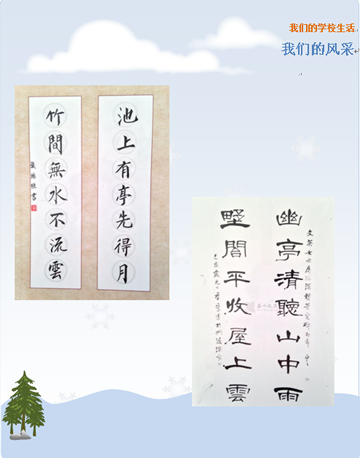 我们的学校生活
我们的风采
池上有亭先得月
竹間無水不流雲
幽亭清聽山中雨
野閣平收屋上雲